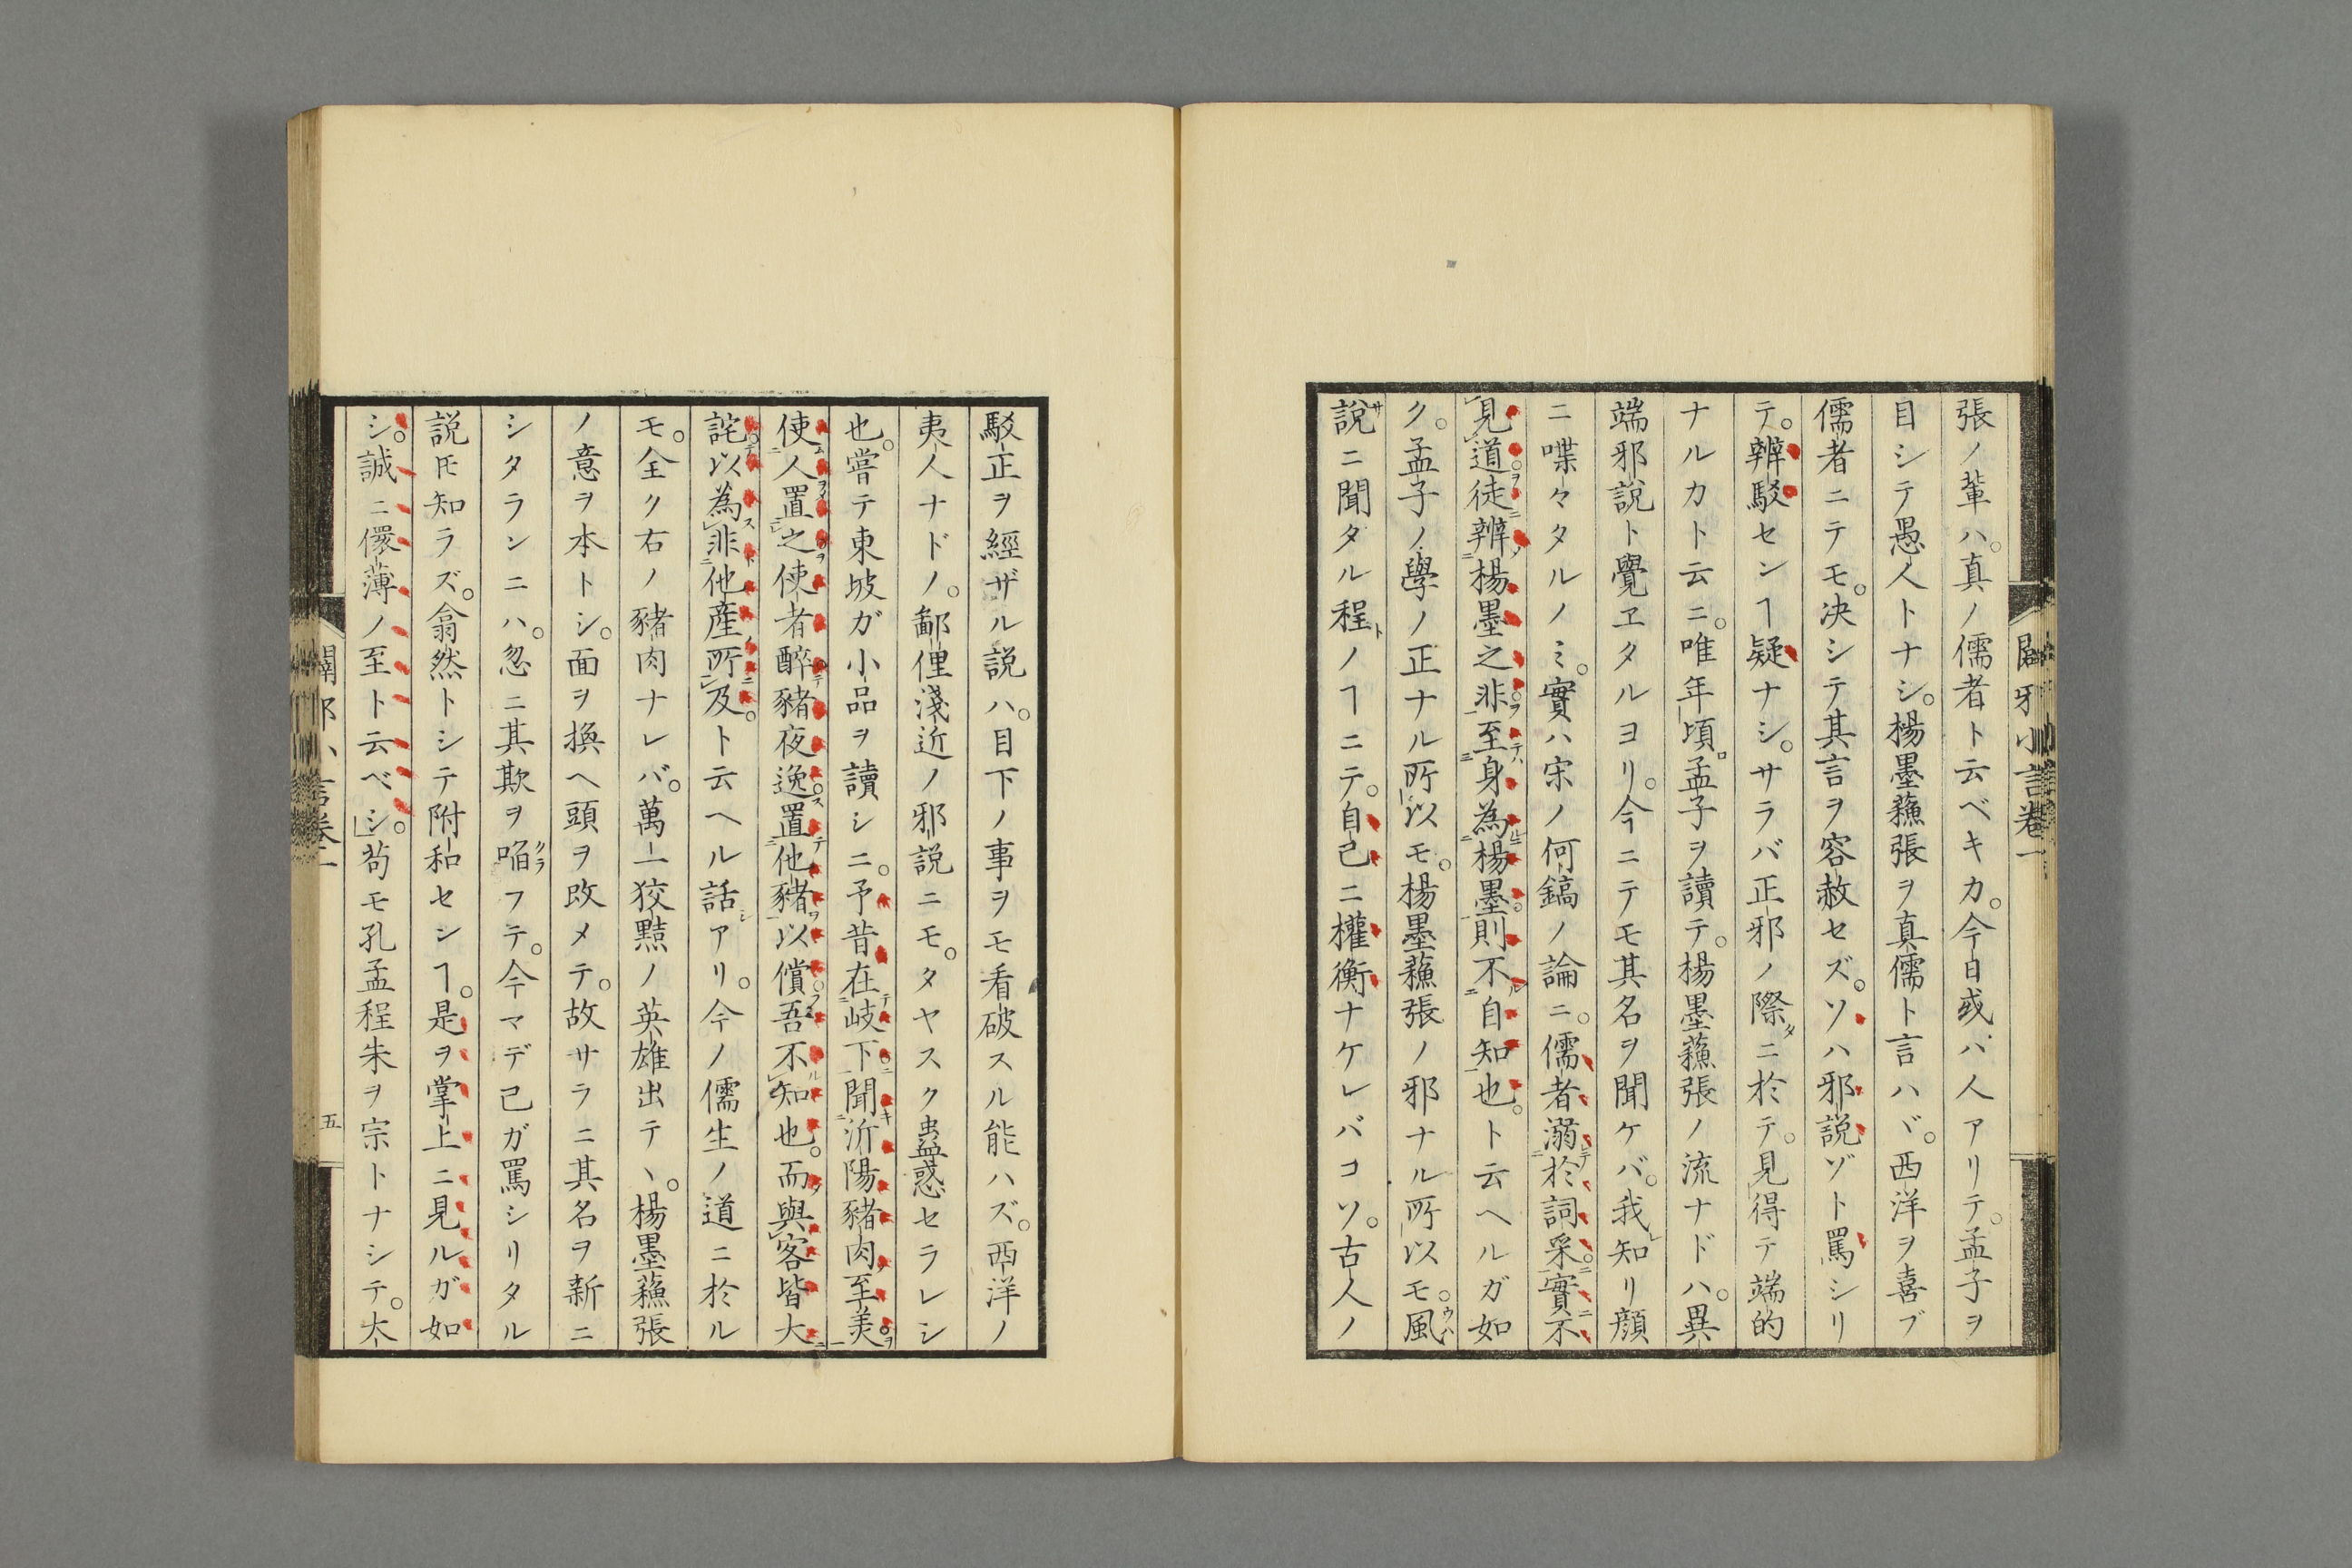 闢邪小言卷一
張ノ輩ハ。真ノ儒者ト云ベキカ。今日或ハ人アリテ。孟子ヲ
目シテ愚人トナシ。楊墨蘓張ヲ真儒ト言ハヾ。西洋ヲ喜ブ
儒者ニテモ。決シテ其言ヲ容赦セズ。ソハ邪説ゾト罵シリ
テ。辨駁センヿ疑ナシ。サラバ正邪ノ際ニ於テ。見得テ端的
ナルカト云ニ。唯年頃孟子ヲ讀テ。楊墨蘓張ノ流ナドハ。異
端邪説ト覺ヱタルヨリ。今ニテモ其名ヲ聞ケバ。我知リ顔
ニ喋々タルノミ。實ハ宋ノ何鎬ノ論ニ。儒者溺於詞采實不
見道徒辨楊墨之非至身為楊墨則不自知也。ト云ヘルガ如
ク。孟子ノ學ノ正ナル所以モ。楊墨蘓張ノ邪ナル所以モ。風
説ニ聞タル程ノヿニテ。自己ニ權衡ナケレバコソ。古人ノ
駁正ヲ經ザル説ハ。目下ノ事ヲモ看破スル能ハズ。西洋ノ
夷人ナドノ。鄙俚淺近ノ邪説ニモ。タヤスク蠱惑セラレシ
也。嘗テ東坡ガ小品ヲ讀シニ。予昔在岐下聞沂陽豬肉至美
使人置之使者醉豬夜逸置他豬以償吾不知也。而與客皆大
詫以為非他産所及。ト云ヘル話アリ。今ノ儒生ノ道ニ於ル
モ。全ク右ノ豬肉ナレバ。萬一狡黠ノ英雄出テヽ。楊墨蘓張
ノ意ヲ本トシ。面ヲ換ヘ頭ヲ改メテ。故サラニ其名ヲ新ニ
シタランニハ。忽ニ其欺ヲ啗フテ。今マデ己ガ罵シリタル
説𪜈知ラズ。翕然トシテ附和センヿ。是ヲ掌上ニ見ルガ如
シ。誠ニ儇薄ノ至ト云ベシ。苟モ孔孟程朱ヲ宗トナシテ。太
闢邪小言卷一
五